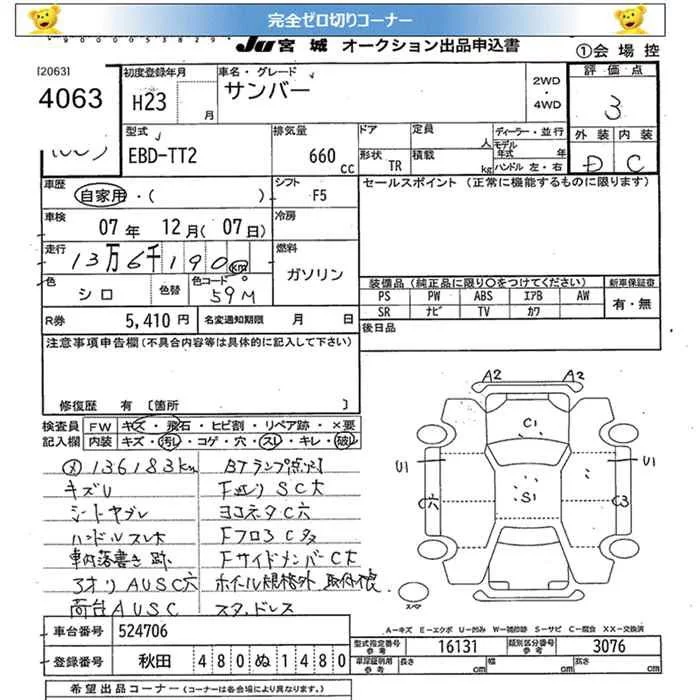 完全ゼロ切りコーナー
JU 宮城 オークション出品申込書
①会場控
[2063]
4063
初度登録年月
H23 月
車名・グレード
サンバー
2WD
・
4WD
評価点
3
外装 内装
D C
型式
EBD-TT2
排気量
660 cc
ドア
定員 人
形状 TR
積載 kg
ディーラー・並行
モデル年式 年
ハンドル 左・右
車歴
自家用・( )
シフト
F5
セールスポイント (正常に機能するものに限ります)
車検
07年 12月(07日)
冷房
走行
13万6千190km
燃料
ガソリン
色
シロ
色替
色コード
59M
装備品(純正品に限り○をつけてください)
新車保証書
PS PW ABS エアB AW
有・無
SR ナビ TV カワ
R券
5,410円
名変通知期限 月 日
後日品
注意事項申告欄(不具合内容等は具体的に記入して下さい)
修復歴 有 〔箇所 〕
検査員記入欄
FW キズ・飛石・ヒビ割・リペア跡・×要
内装 キズ・汚レ・コゲ・穴・スレ・キレ・破レ
136183km
BTランプ点灯
キズU
SC大
シートヤブレ
ヨコネタC穴
ハンドルスレ大
Fフロア C多
車内落書き跡
FサイドメンバーC大
AUSC穴
ホイル規格外
荷台AUSC
スタッドレス
A2 A2
C1
U1 U1
S1
C穴
C3
スペア
A=キズ E=エクボ U=凹み W=補修跡 S=サビ C=腐食 XX=交換済
車台番号
524706
登録番号
秋田 480 ぬ 1480
型式指定番号 参考
16131
類別区分番号 参考
3076
車庫証明用 参考
長さ cm
幅 cm
高さ cm
希望出品コーナー(コーナーは各会場により異なります。)